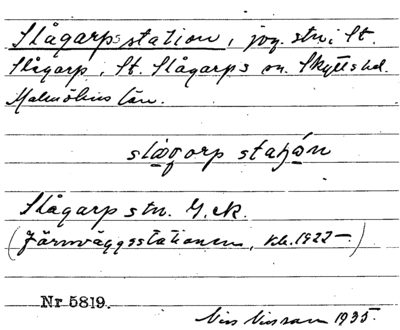 Slågarps station, jvg. stn i St.
Slågarp, St. Slågarps sn. Skytts hd.
Malmöhus län.
slågorp
Slågarp stn. G. ek.
(Järnvägsstationen, kb. 1922—)
Nr 5819.
Nils Nilsson 1935.